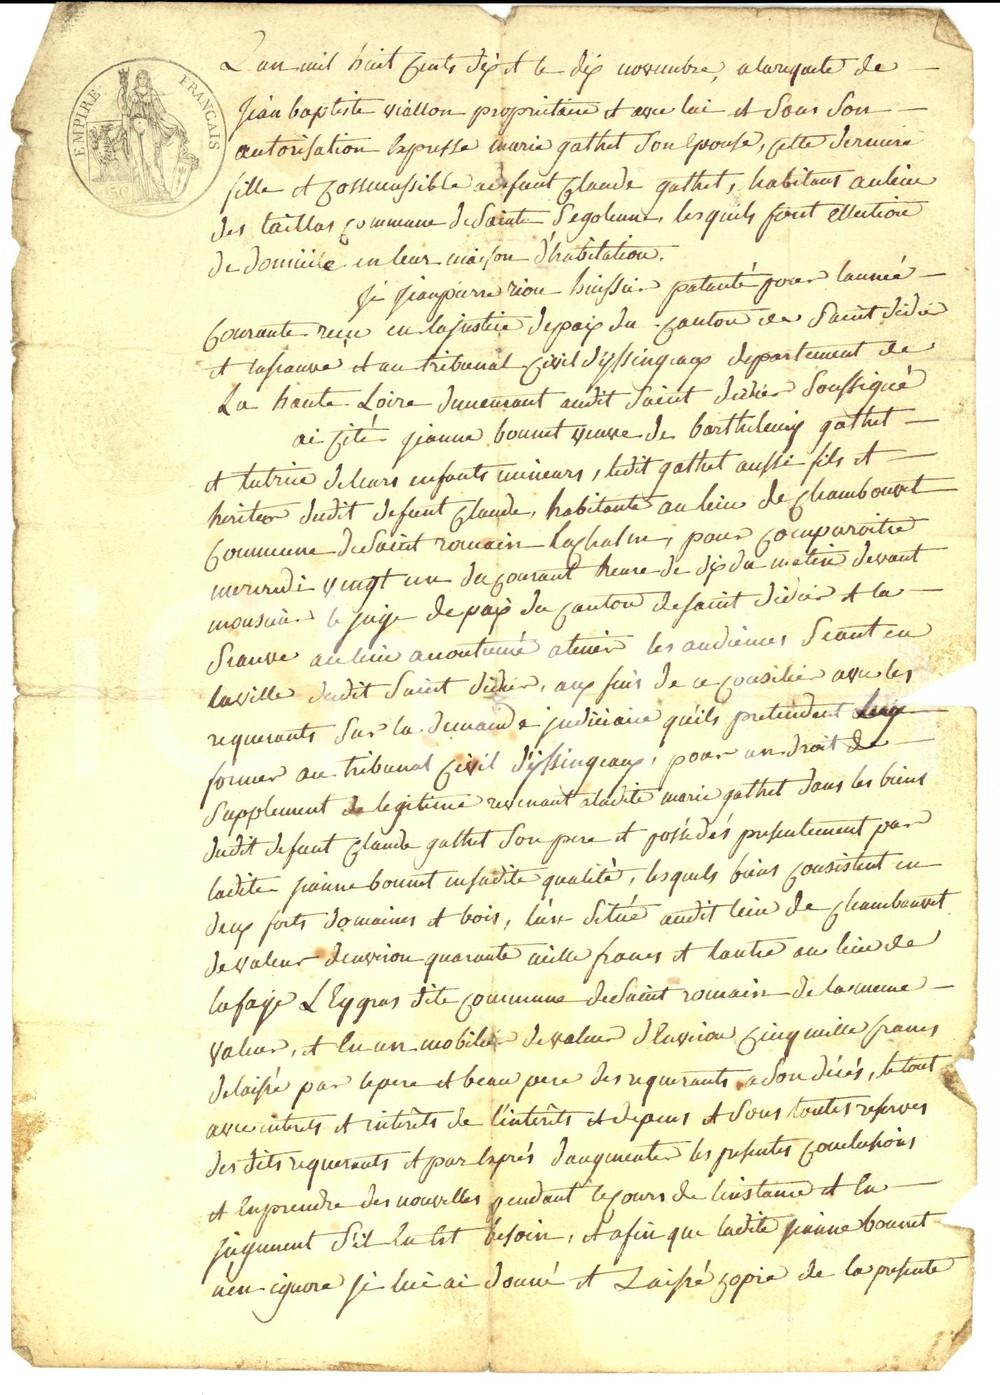 EMPIRE FRANÇAIS
L'an mil huit cents dix et le dix novembre, a la requete de
Jean baptiste viallon propriétaire et avec lui et sous son
autorisation expresse marie gathet son épouse, cette derniere
fille et cosuccessible a defunt Claude gathet, habitant au lieu
des taillas commune de Sainte Segolene, lesquels font ellection
de domicile en leur maison d'habitation.
Je Jean pierre riou huissier patanté pour l'année
Courante reçu en la justice de paix du canton de Saint didier
et laseauve et au tribunal Civil d'yssingeaux departement de
La haute Loire demeurant audit Saint didier soussigné
ai cité Jeanne bonnet veuve de barthelemy gathet
et tutrice de leurs enfants mineurs, ledit gathet aussi fils et
heritier dudit defunt Claude, habitante au lieu de Chambouvet
Commune de Saint romain lachalm, pour comparoitre
mercredi vingt un du courant heure de dix du matin devant
monsieur le juge de paix du canton de saint didier et la
Seauve au lieu accoutumé a tenir les audiences Seant en
la ville dudit Saint didier, aux fins de ce consilier avec les
requerants sur la demande judiciaire qu'ils pretendent
former au tribunal Civil d'yssingeaux, pour un droit de
Supplement de legitime revenant a ladite marie gathet dans les biens
dudit defunt Claude gathet son pere et possédés presentement par
ladite jeanne bonnet en sadite qualité, lesquels biens consistent en
deux forts domaines et bois, l'un situé audit lieu de Chambouvet
de valeur d'environ quarante mille francs et l'autre au lieu de
lafaye L'Eygras dite commune de Saint romain de la meme
valeur, et en un mobilier de valeur d'environ cinq mille francs
delaissé par le pere et beau pere des requerants a son décés, le tout
avec interets et intérêts de l'intérêts et depens et sous toutes reserves
des dits requerants et par exprés d'augmenter les presentes conclusions
et en prendre des nouvelles pendant le cours de l'instance et en
jugement s'il en est besoin, et afin que ladite jeanne bonnet
n'en ignore je lui ai donné et Laissé copie de la presente